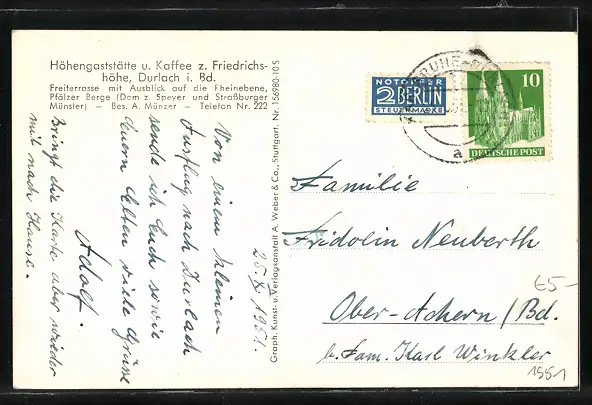 Höhengaststätte u. Kaffee z. Friedrichs-
höhe, Durlach i. Bd.
Freiterrasse mit Ausblick auf die Rheinebene,
Pfälzer Berge (Dom z. Speyer und Straßburger
Münster) – Bes. A. Münzer – Telefon Nr. 222
Von einem kleinen
Ausflug nach Durlach
sende ich Euch sowie
Euern Eltern viele Grüsse
Adolf.
Bringt die Karte aber wieder
mit nach Hause.
25. X. 1951.
Graph. Kunst- u. Verlagsanstalt A. Weber & Co., Stuttgart. Nr. 156980-10 S
NOTOPFER
2 BERLIN
STEUERMARKE
10
DEUTSCHE POST
a
Familie
Fridolin Neuberth
Ober-Achern/Bd.
b. Fam. Karl Winkler
€5-
1951